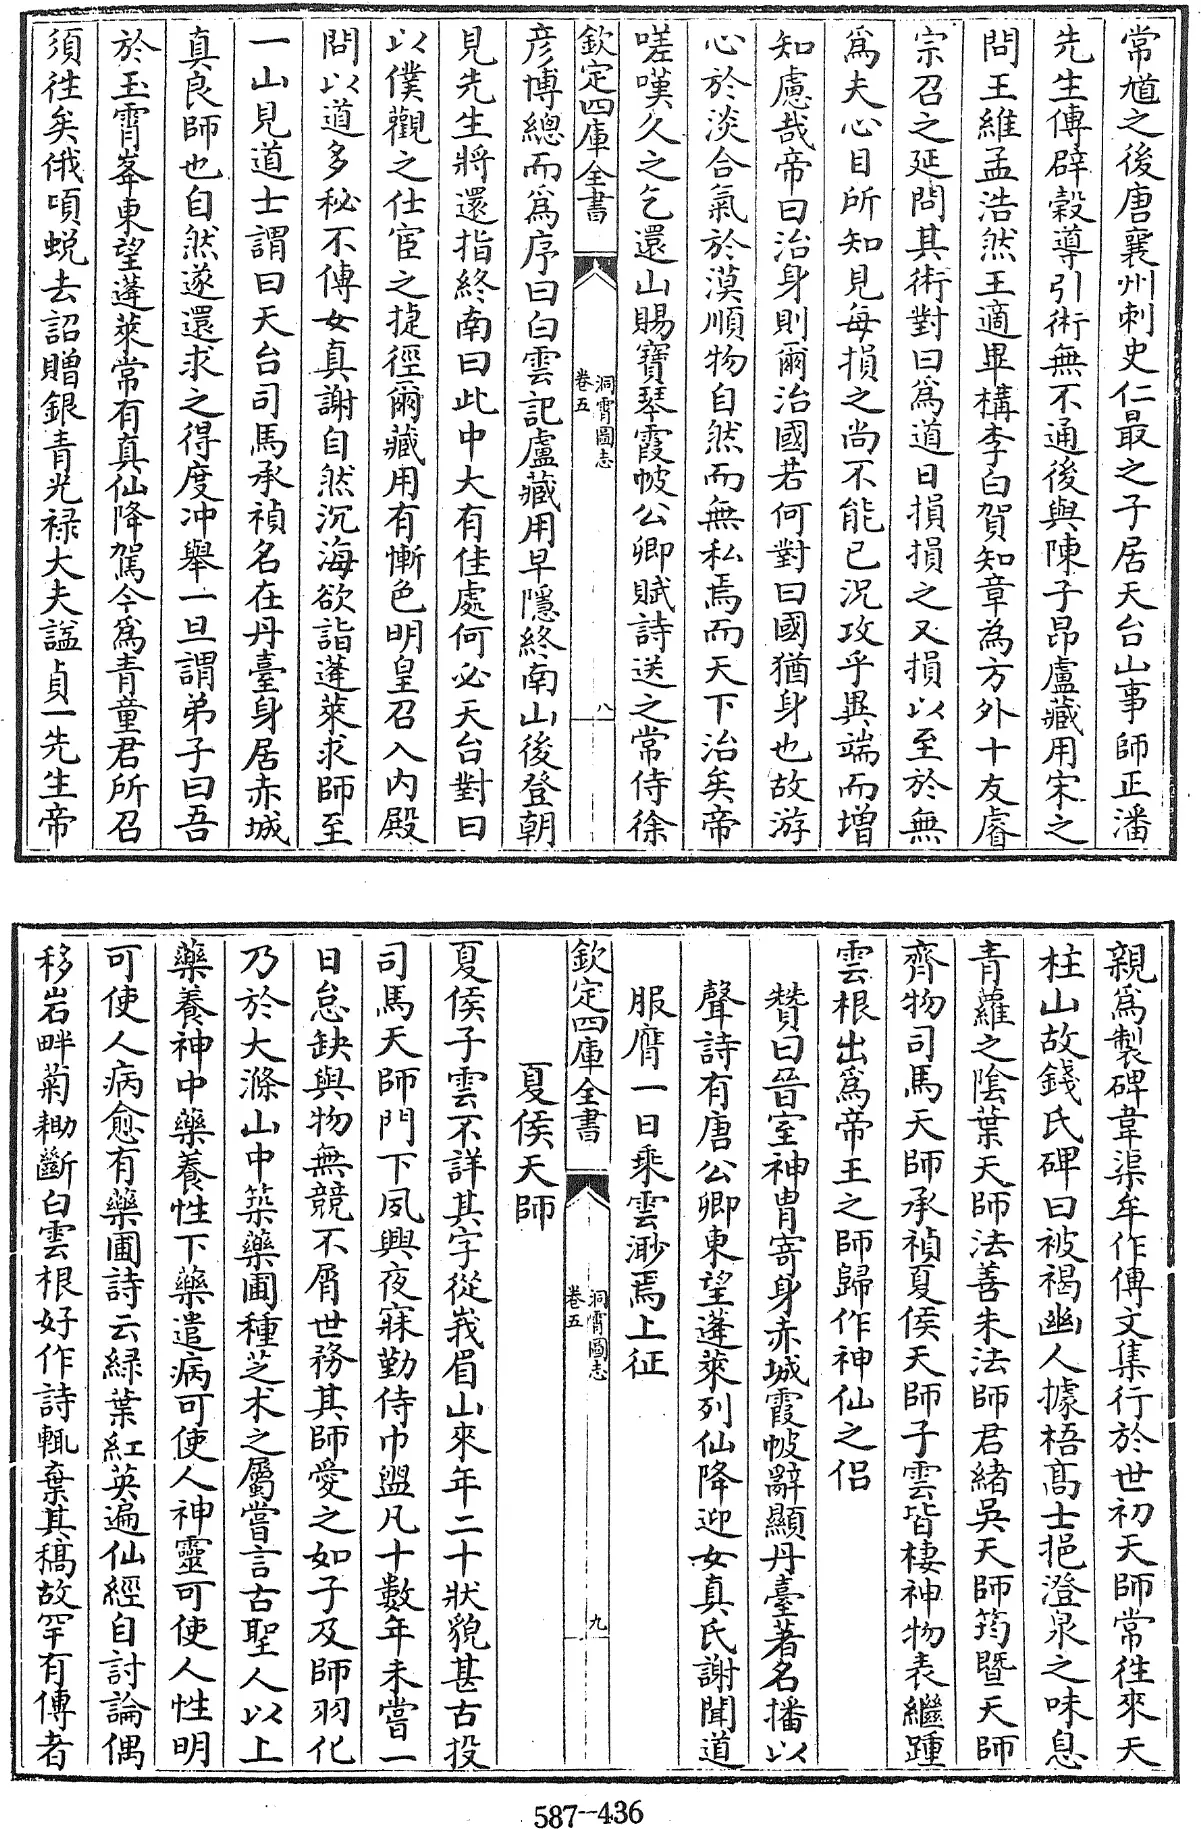 常馗之後唐襄州刺史仁最之子居天台山事師正潘
先生傳辟穀導引術無不通後與陳子昂盧藏用宋之
問王維孟浩然王適畢構李白賀知章為方外十友睿
宗召之延問其術對曰爲道日損損之又損以至於無
爲夫心目所知見每損之尚不能已況攻乎異端而增
知慮哉帝曰治身則爾治國若何對曰國猶身也故游
心於淡合氣於漠順物自然而無私焉而天下治矣帝
嗟嘆久之乞還山賜寶琴霞帔公卿賦詩送之常侍徐
欽定四庫全書
洞霄圖志
卷五
八
彦博總而爲序曰白雲記盧藏用早隱終南山後登朝
見先生將還指終南曰此中大有佳處何必天台對曰
以僕觀之仕宦之捷徑爾藏用有慚色明皇召入内殿
問以道多秘不傳女真謝自然沉海欲詣蓬萊求師至
一山見道士謂曰天台司馬承禎名在丹臺身居赤城
真良師也自然遂還求之得度冲舉一旦謂弟子曰吾
於玉霄峯東望蓬萊常有真仙降駕今爲青童君所召
須往矣俄頃蜕去詔贈銀青光禄大夫諡貞一先生帝
親爲製碑韋渠牟作傳文集行於世初天師常往來天
柱山故錢氏碑曰被褐幽人據梧髙士挹澄泉之味息
青蘿之陰葉天師法善朱法師君緒吳天師筠暨天師
齊物司馬天師承禎夏侯天師子雲皆棲神物表繼踵
雲根出爲帝王之師歸作神仙之侣
贊曰晉室神胄寄身赤城霞帔辭顯丹臺著名播以
聲詩有唐公卿東望蓬萊列仙降迎女真氏謝聞道
服膺一日乘雲渺焉上征
欽定四庫全書
洞霄圖志
卷五
九
夏侯天師
夏侯子雲不詳其字從峩眉山來年二十狀貌甚古投
司馬天師門下夙興夜寐勤侍巾盥凡十數年未嘗一
日怠缺與物無競不屑世務其師愛之如子及師羽化
乃於大滌山中築藥圃種芝术之屬嘗言古聖人以上
藥養神中藥養性下藥遣病可使人神靈可使人性明
可使人病愈有藥圃詩云緑葉紅英遍仙經自討論偶
移岩畔菊耡斷白雲根好作詩輒棄其稿故罕有傳者
587--436